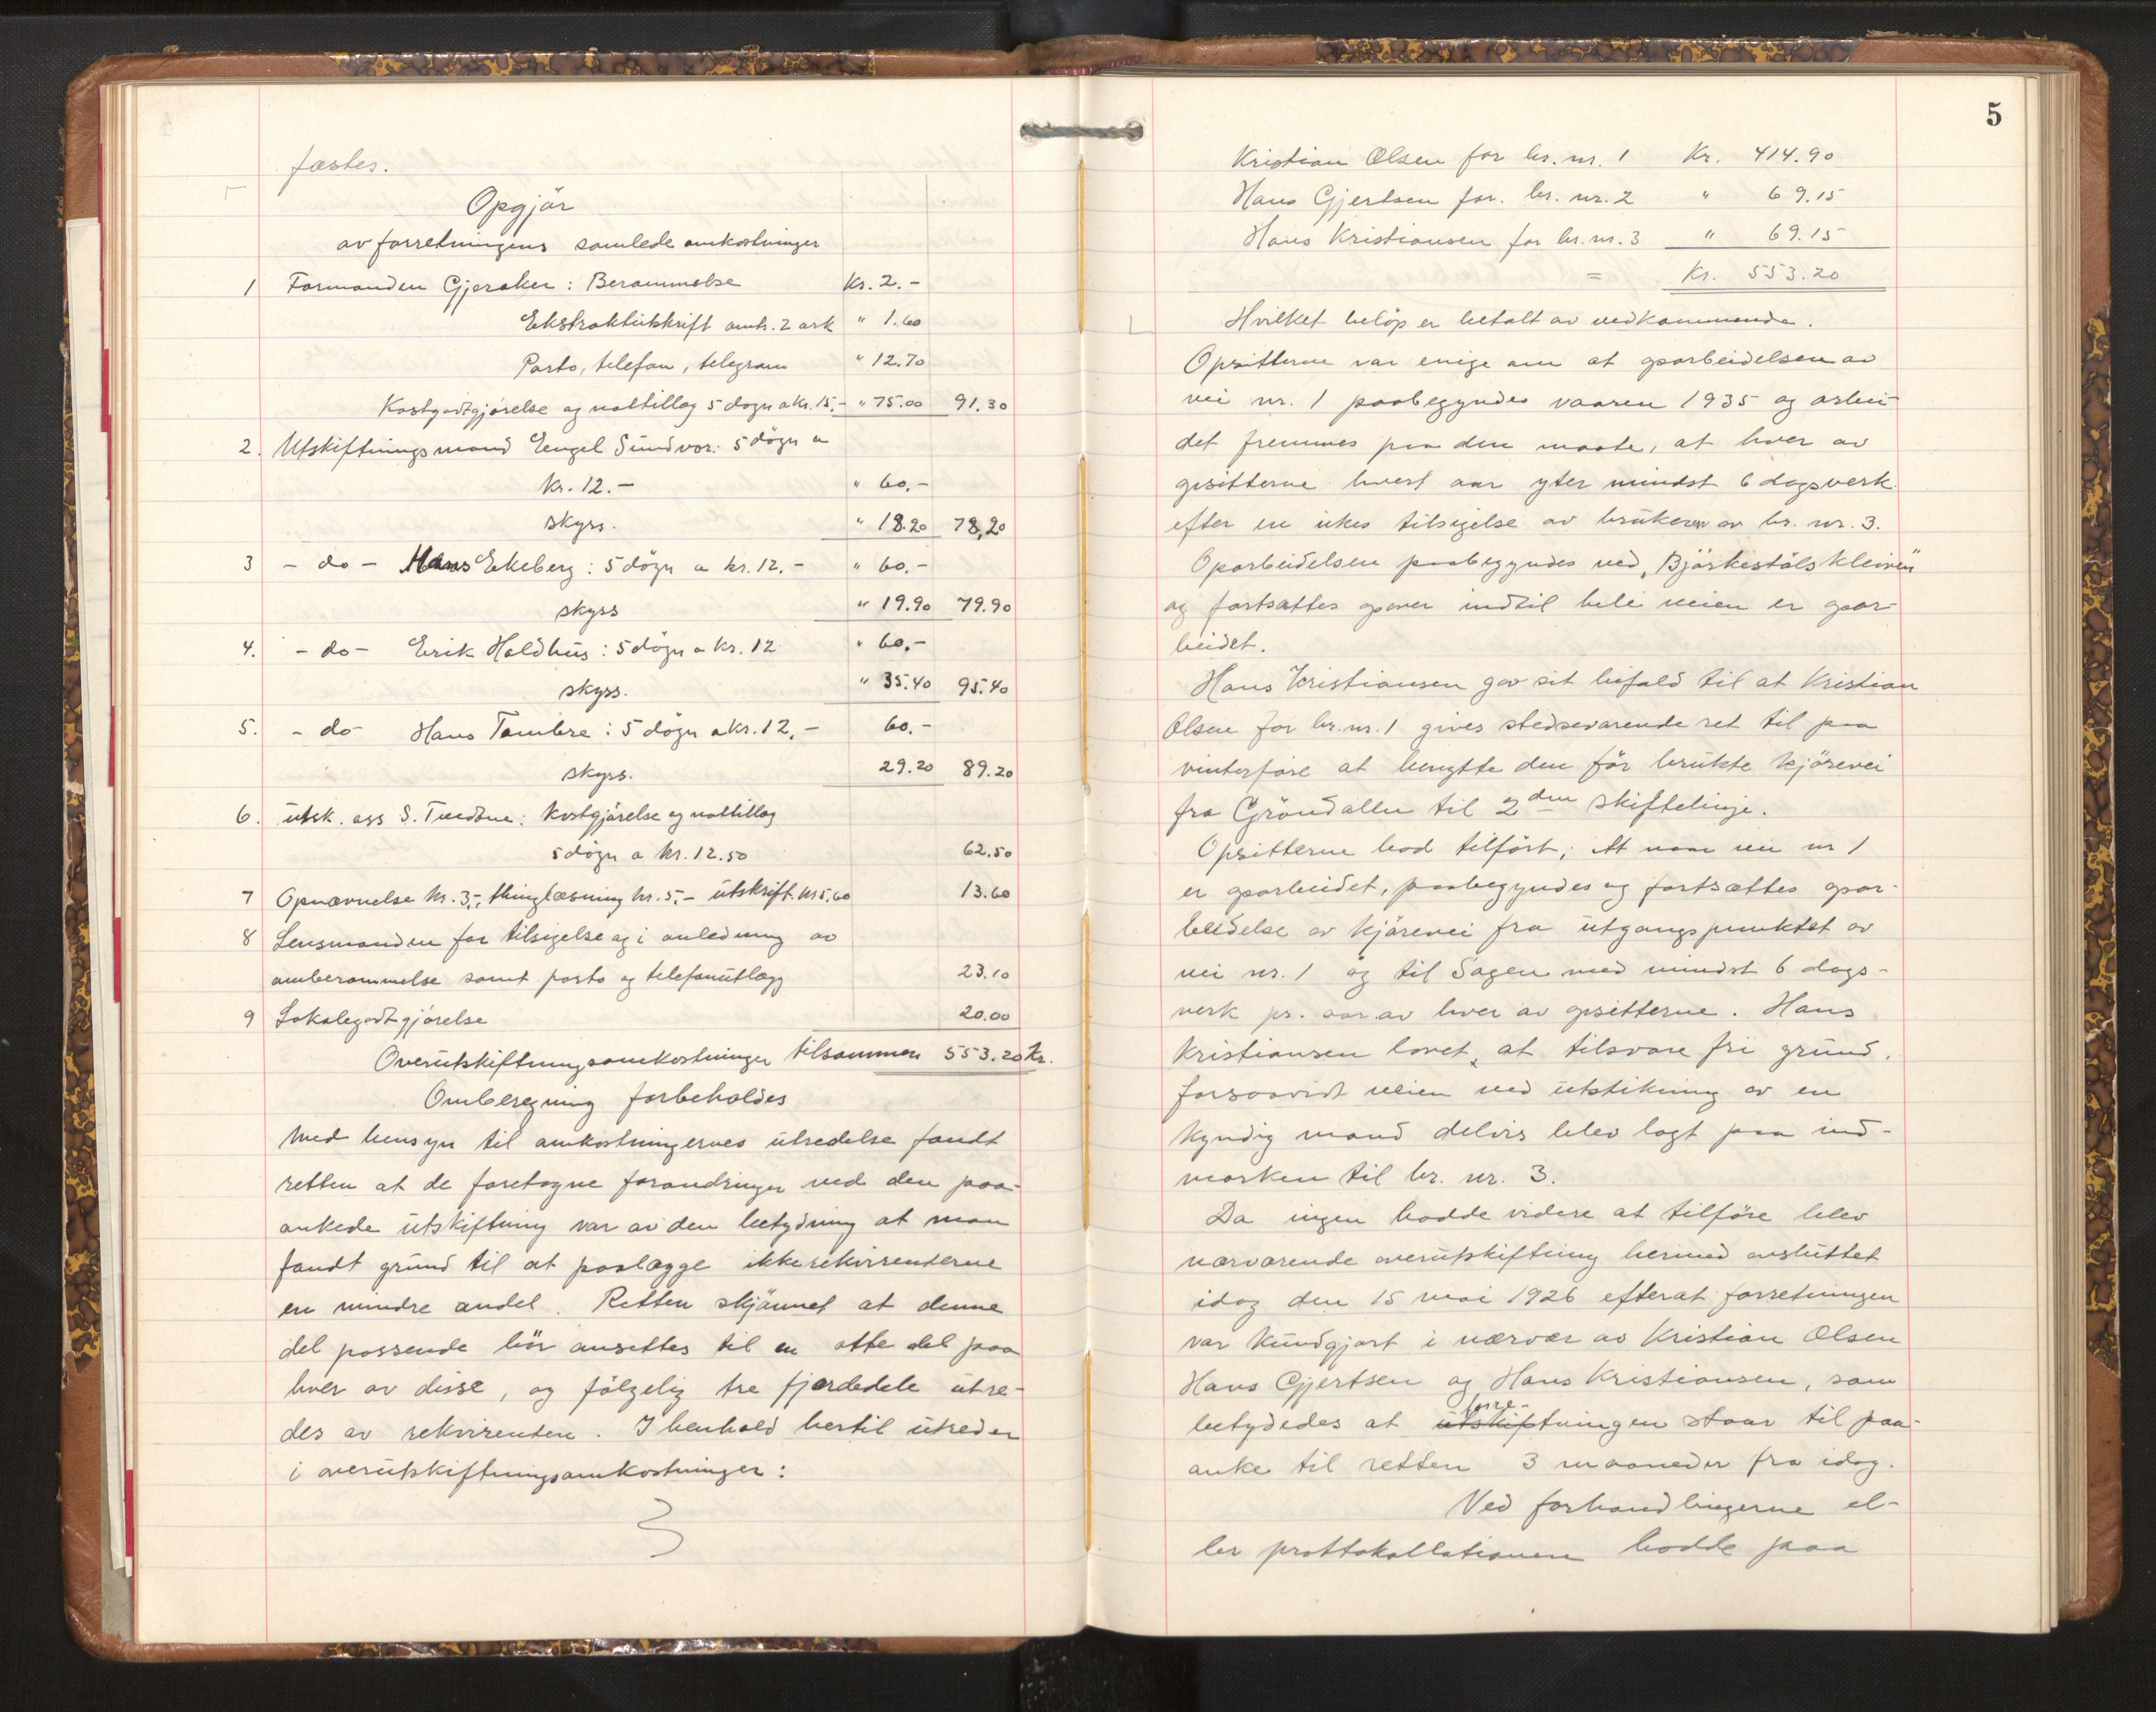 fæstes.
Opgjör
av forretningens samlede omkostninger
1 Formanden Gjeraker: Berammelse Kr. 2.-
Ekstraktutskrift omtr. 2 ark " 1.60
Porto, telefon, telegram " 12.70
Kostgodtgjörelse og nattillæg 5 dogn a kr. 15.- " 75.00 91.30
2. Utskiftningsmand Engel Sundvor: 5 dögn a
kr. 12.- " 60.-
skyss. " 18.20 78,20
3 - do - Hans Ekeberg: 5 dögn a kr. 12.- " 60.-
skyss " 19.90 79.90
4. - do - Erik Holdhus: 5 dögn a kr. 12 " 60.-
skyss. " 35.40 95.40
5. - do - Hans Tombre: 5 dögn a kr. 12.- 60.-
skyss. 29.20 89.20
6. utsk. ass S. Tvedtne: Kostgjörelse og nattillæg
5 dögn a kr. 12.50 62.50
7 Opnævnelse kr. 3,-, thinglæsning kr. 5,- utskrift kr 5.60 13.60
8 Lensmanden for tilsigelse og i anledning av
omberammelse samt porto og telefonutlægg 23.10
9 Lokalegodtgjörelse 20.00
Overutskiftningsomkostninger tilsammen 553.20 Kr.
Omberegning forbeholdes
Med hensyn til omkostningernes utredelse fandt
retten at de foretagne forandringer ved den paa-
ankede utskiftning var av den betydning at man
fandt grund til at paalægge ikkerekvirenterne
en mindre andel. Retten skjönnet at denne
del passende bör ansettes til en otte del paa
hver av disse, og fölgelig tre fjerdedele utre-
des av rekvirenten. I henhold hertil utreder
i overutskiftningsomkostninger:
5
Kristian Olsen for br. nr. 1 Kr. 414.90
Hans Gjertsen for. br. nr. 2 " 69.15
Hans Kristiansen for br. nr. 3 " 69.15
= Kr. 553.20
Hvilket belöp er betalt av vedkommende.
Opsitterne var enige om at oparbeidelsen av
vei nr. 1 paabegyndes vaaren 1935 og arbei-
det fremmes paa den maate, at hver av
opsitterne hvert aar yter mindst 6 dagsverk
efter en ukes tilsigelse av brukeren av br. nr. 3.
Oparbeidelsen paabegyndes ved "Björkestölskleiven"
og fortsættes opover indtil hele veien er opar-
beidet.
Hans Kristiansen gav sit bifald til at Kristian
Olsen for br. nr. 1 gives stedsevarende ret til paa
vinterföre at benytte den för brukte kjörevei
fra Gröndallen til 2den skiftelinje.
Opsitterne bad tilfört; At naar vei nr 1
er oparbeidet, paabegyndes og fortsættes opar-
beidelse av kjörevei fra utgangspunktet av
vei nr. 1 og til Sagen med mindst 6 dags-
verk pr. aar av hver av opsitterne. Hans
Kristiansen lovet at tilsvare fri grund.
forsaavidt veien ved utstikning av en
kyndig mand delvis blev lagt paa ind-
marken til br. nr. 3.
Da ingen hadde videre at tilföre blev
nærværende overutskiftning hermed avsluttet
idag den 15 mai 1926 efterat forretningen
var kundgjort i nærvær av Kristian Olsen
Hans Gjertsen og Hans Kristiansen, som
betydedes at utskiftningen forre- staar til paa-
anke til retten 3 maaneder fra idag.
Ved forhandlingerne el-
ler prottokollationen hadde paa